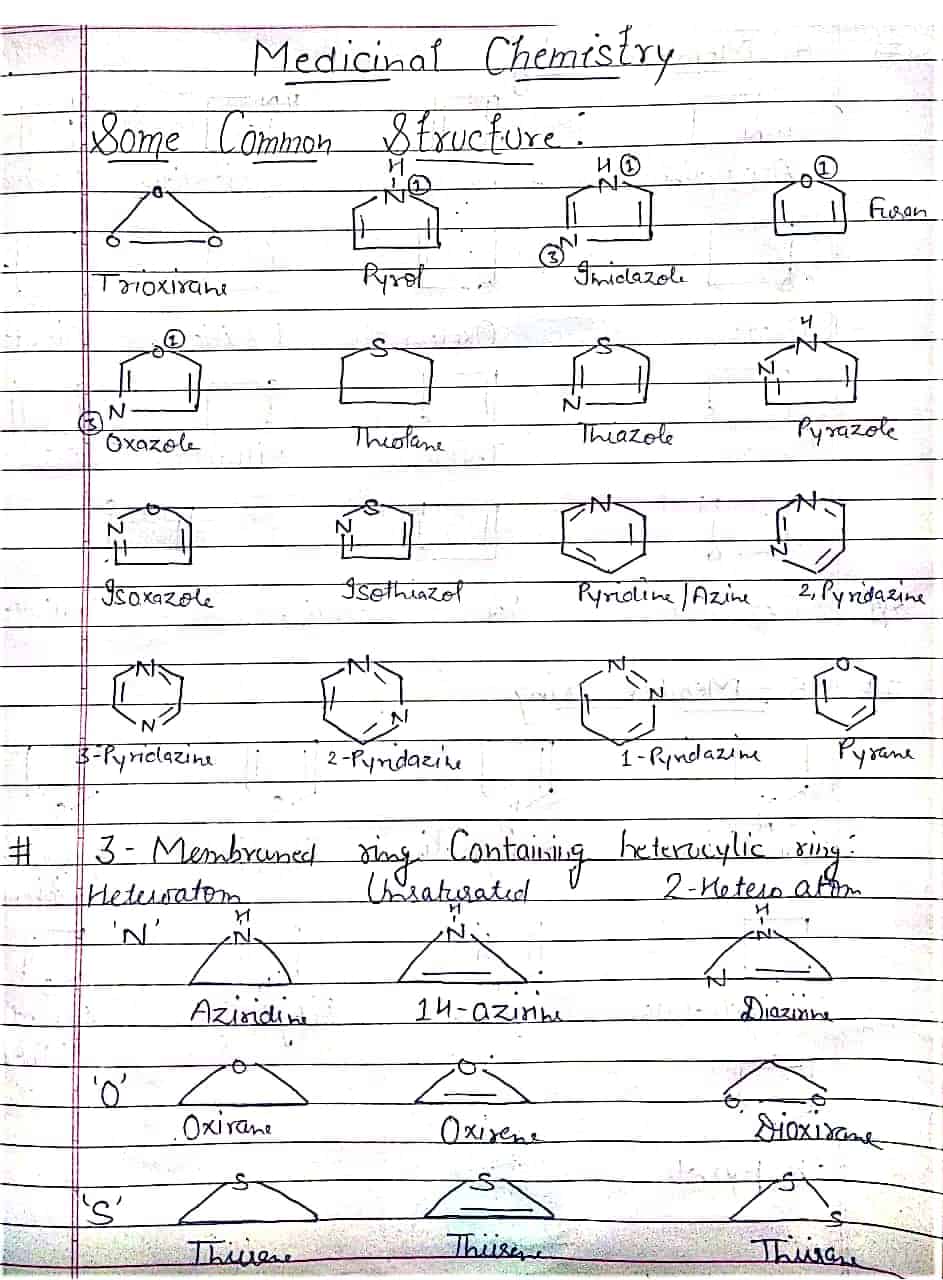 Medicinal Chemistry
Some Common Structure:
O O O H N ① H N ① N ③ O ① Furan
Trioxirane Pyrol Imidazole
O ① N ③ S S N H N N
Oxazole Thiolane Thiazole Pyrazole
O N S N N N N
Isoxazole Isothiazol Pyridine/Azine 2,Pyridazine
N N N N N N O
3-Pyridazine 2-Pyridazine 1-Pyridazine Pyrane
# 3-Membraned ring Containing heterocylic ring:
Heteroatom Unsaturated 2-Hetero atom
'N' H N H N H N N
Aziridine 1H-azirine Diazirine
'O' O O O O
Oxirane Oxirene Dioxirane
'S' S S S S
Thiirane Thiirene Thiirane